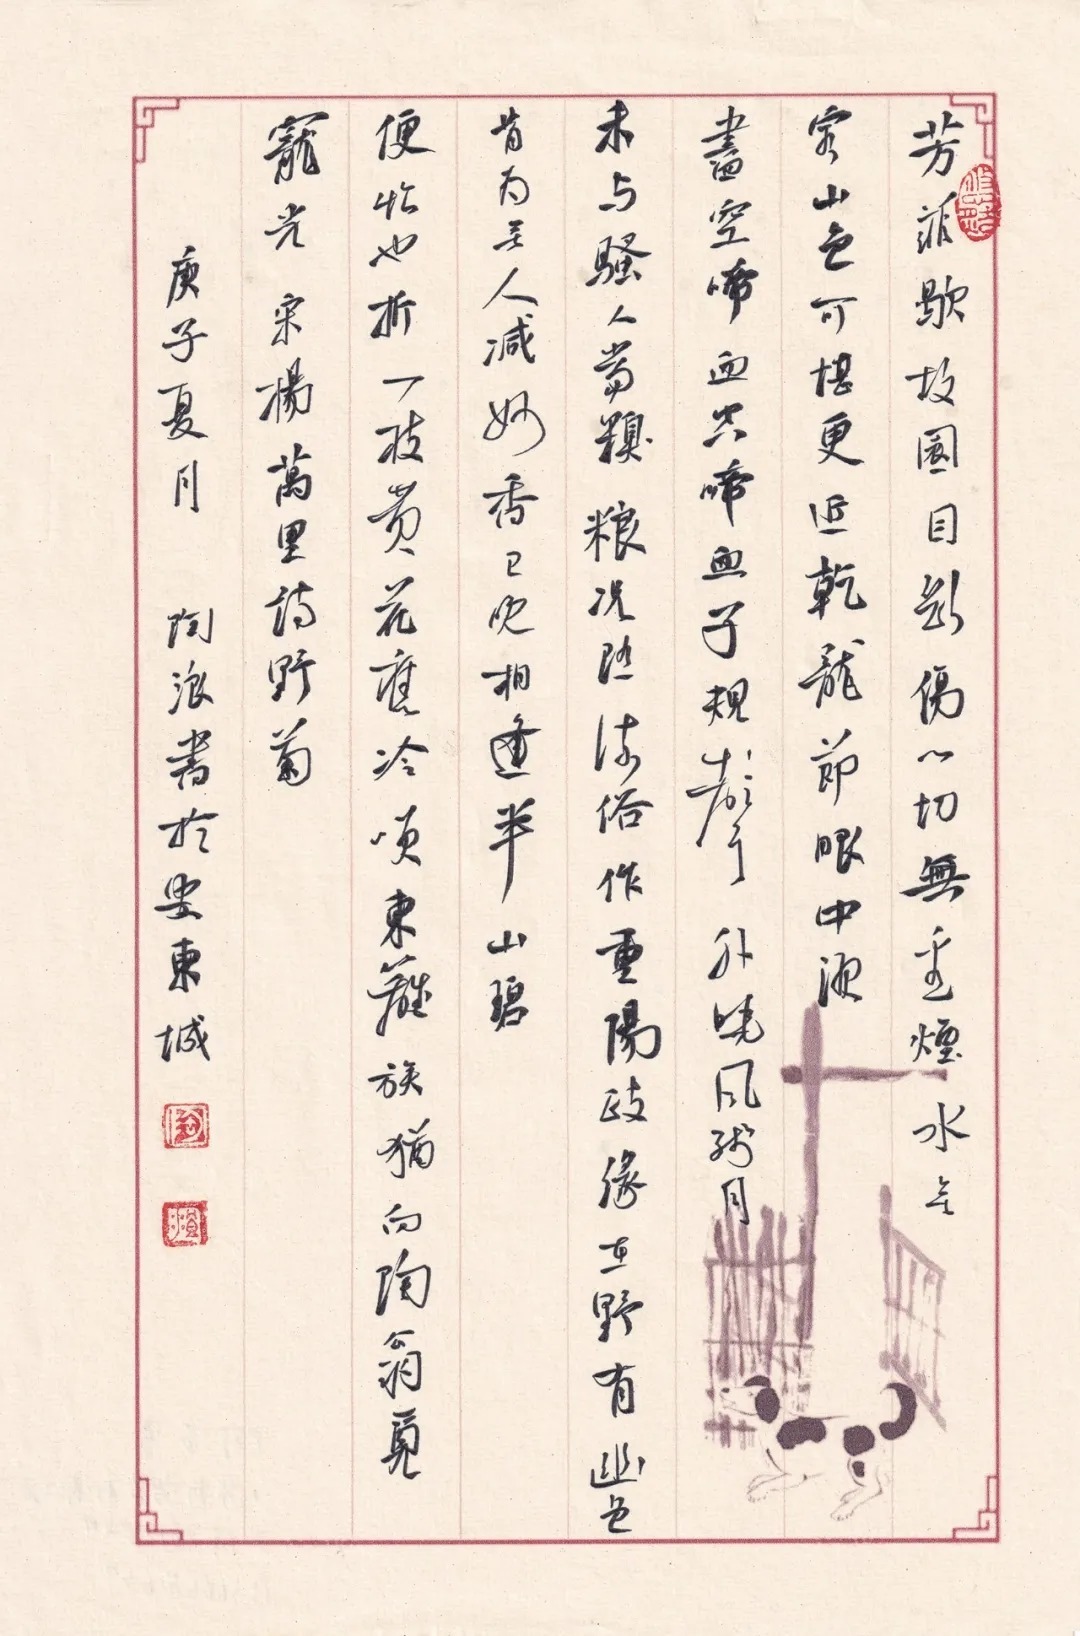 芳菲歇故園目斷傷心切無盡煙水無
窮山色可堪更近乾龍節眼中淚
盡空啼血空啼血子規聲外曉風殘月
未与騷人當糗粮况随流俗作重陽政缘在野有幽色
肯为無人减妙香已晚相逢半山碧
便忙也折一枝黄花應冷笑東籬族猶向陶翁覓
寵光 宋楊萬里詩野菊
庚子夏月 陶浪書於安東城